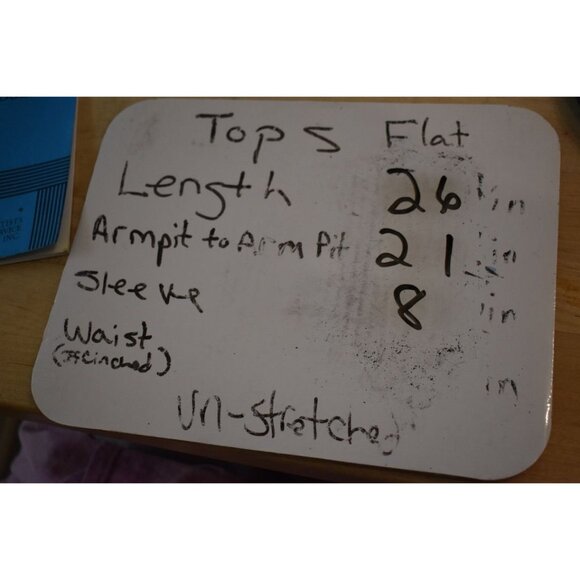 Tops Flat
Length 26 in
Armpit to Arm Pit 21 in
Sleeve 8 in
Waist in
(If Cinched)
Un-stretched
SERVICE
INC.